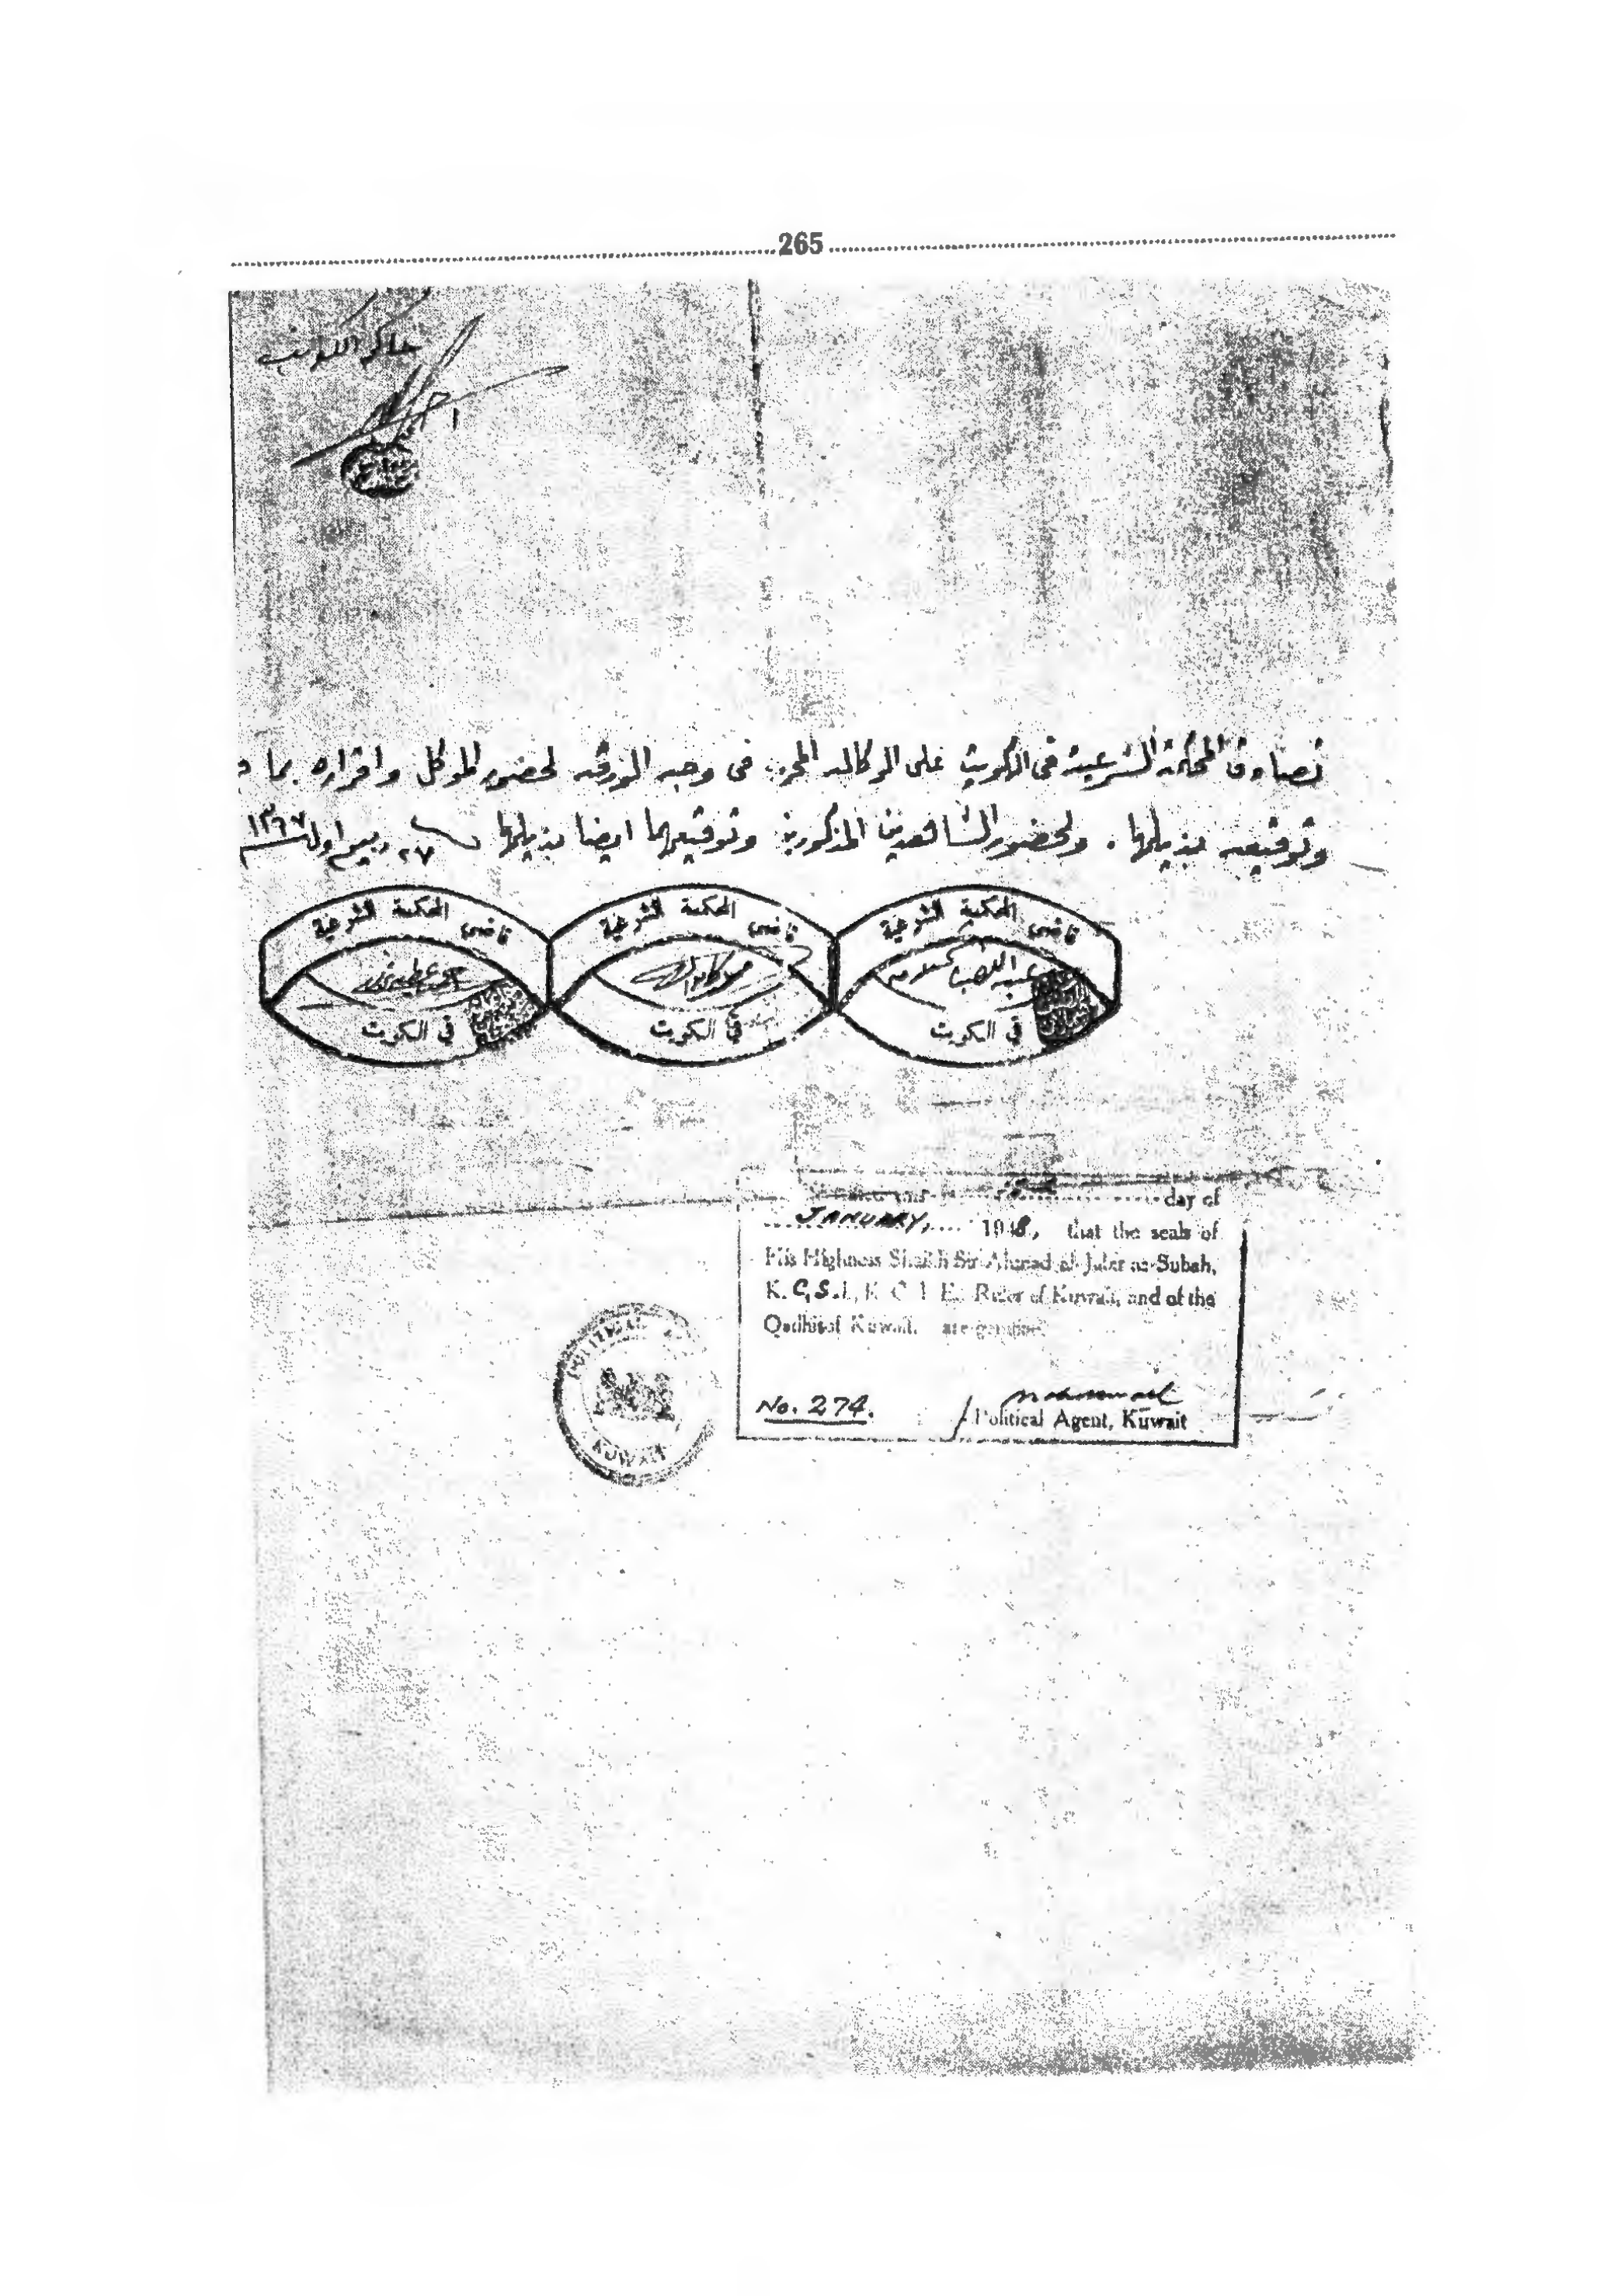 265
حاكم الكويت
تصادق المحكمة الشرعية في الكويت على الوكالة المحررة في وجه الورقه لحضور الموكل واقراره بما
وتوقيعه بذيلها . ولحضور الشاهدين المذكورين وتوقيعهما ايضا بذيلها ٢٧ ربيع اول ١٣٦٧
قاضي المحكمة الشرعية
في الكويت
قاضي المحكمة الشرعية
في الكويت
قاضي المحكمة الشرعية
في الكويت
day of
JANUARY, 1948, that the seals of
His Highness Shaikh Sir Ahmad al-Jabir as-Subah,
K.C.S.I., K.C.I.E., Ruler of Kuwait, and of the
Qadhis of Kuwait. are genuine.
No. 274.
Political Agent, Kuwait
POLITICAL
KUWAIT